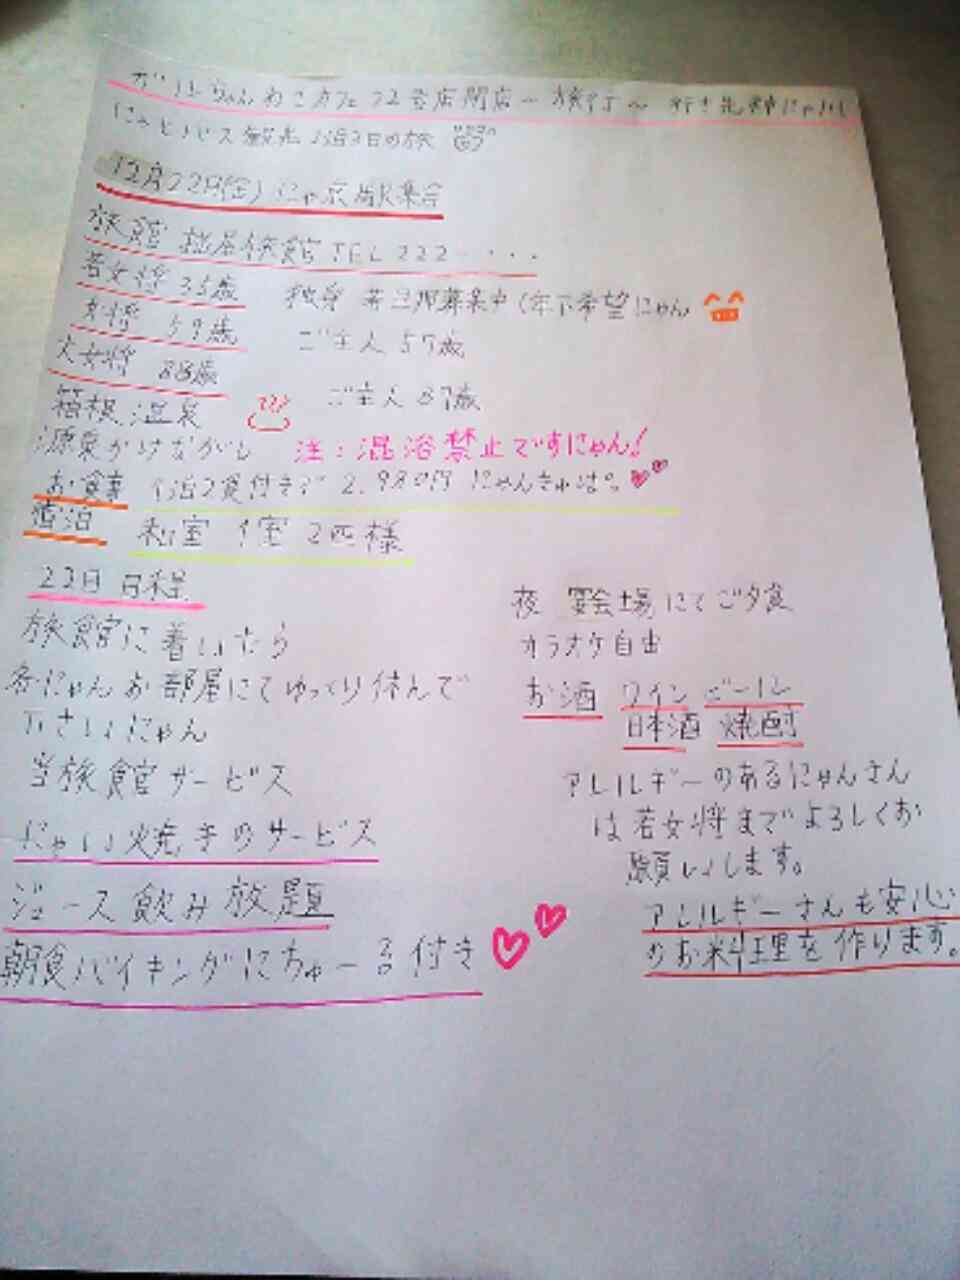 ねこカフェ22号店閉店〜旅行〜 行き先神にゃ川
にゃとバス観光 1泊2日の旅
12月22日(金) にゃ京駅集合
旅館 旅館 TEL 222-・・・
若女将 35歳 独身 若旦那募集中(年下希望にゃん
女将 59歳 ご主人 57歳
大女将 88歳 ご主人 87歳
箱根温泉
源泉かけながし 注:混浴禁止ですにゃん!
お食事 1泊2食付きで 2,980円
宿泊 和室 1室 2匹様
22日 日程
旅館に着いたら
各にゃんお部屋にてゆっくり休んで
下さいにゃん
当旅館サービス
にゃい焼きのサービス
ジュース飲み放題
朝食バイキングにちゅーる付き
夜 宴会場にてご夕食
カラオケ自由
お酒 ワイン ビール
日本酒 焼酎
アレルギーのあるにゃんさん
は若女将までよろしくお
願いします。
アレルギーさんも安心
のお料理を作ります。